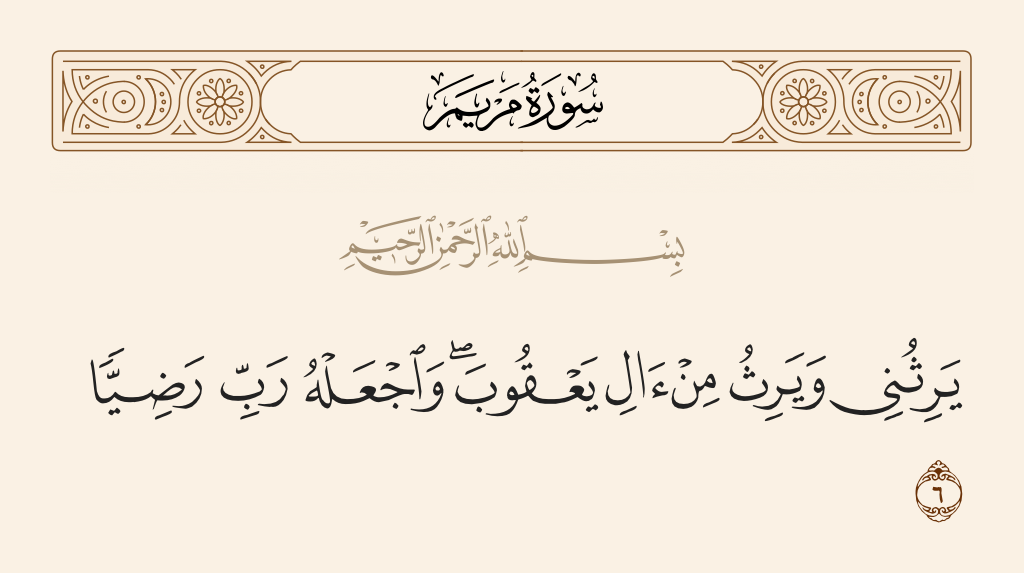 سُورَةُ مَرْيَمَ
بِسْمِ ٱللَّهِ ٱلرَّحْمَٰنِ ٱلرَّحِيمِ
يَرِثُنِى وَيَرِثُ مِنْ ءَالِ يَعْقُوبَ ۖ وَٱجْعَلْهُ رَبِّ رَضِيًّا
٦